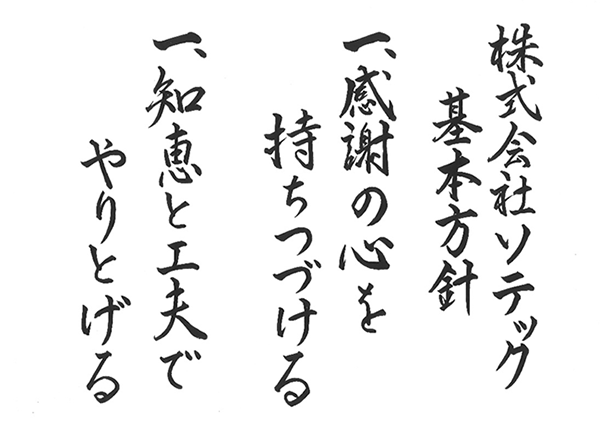 株式会社ソテック
基本方針
一、感謝の心を
持ちつづける
一、知恵と工夫で
やりとげる